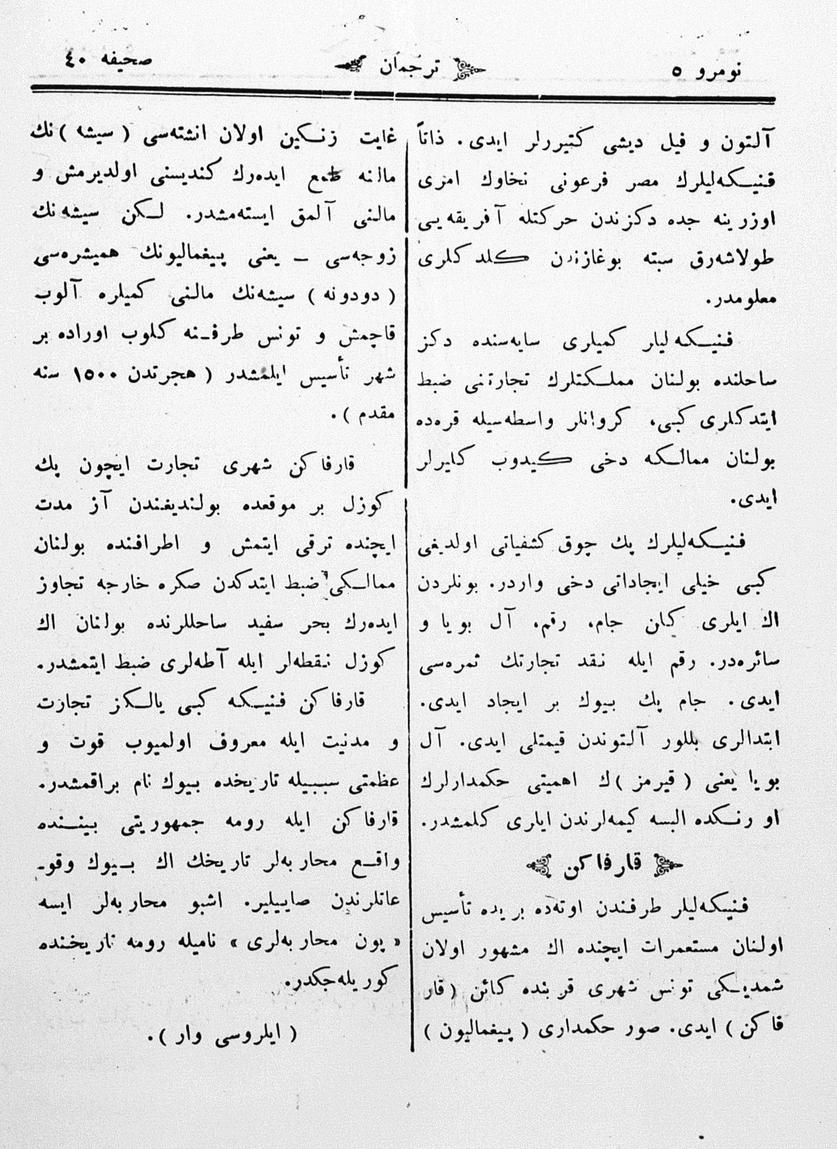 نومرو ٥
ترجمان
صحیفه ٤٠
آلتون و فیل دیشی كتیررلر ایدی. ذاتاً
فنیـكه‌لیلرك مصر فرعونی نخاوك امری
اوزرینه جده دكزندن حركتله آفریقه‌یی
طولاشه‌رق سبته بوغازندن كلدكلری
معلومدر.
فنیـكه‌لیلر كمیلری سایه‌سنده دكز
ساحلنده بولنان مملـكتلرك تجارتنی ضبط
ایتدكلری كبی، كروانلر واسطه‌سیله قره‌ده
بولنان ممالـكه دخی كیدوب كلیرلر
ایدی.
فنیـكه‌لیلرك پك چوق كشفیاتی اولدیغی
كبی خیلی ایجاداتی دخی واردر. بونلردن
اك ایلری كلان جام، رقم، آل بویا و
سائره‌در. رقم ایله نقد تجارتك ثمره‌سی
ایدی. جام پك بیوك بر ایجاد ایدی.
ابتدالری بللور آلتوندن قیمتلی ایدی. آل
بویا یعنی (قیرمز)ك اهمیتی حكمدارلرك
او رنـكده البسه كیمه‌لرندن ایلری كلمشدر.
قارفاكن
فنیـكه‌لیلر طرفندن اوته‌ده بریده تأسیس
اولنان مستعمرات ایچنده اك مشهور اولان
شمدیـكی تونس شهری قربنده كائن (قار
قاكن) ایدی. صور حكمداری (پیغمالیون)
غایت زنـكین اولان انشته‌سی (سیشه)نك
مالنه طمع ایده‌رك كندیسنی اولدیرمش و
مالنی آلمق ایسته‌مشدر. لـكن سیشه‌نك
زوجه‌سی – یعنی پیغمالیونك همیشره‌سی
(دودونه) سیشه‌نك مالنی كمیلره آلوب
قاچمش و تونس طرفـنه كلوب اوراده بر
شهر تأسیس ایلمشدر (هجرتدن ١٥٠٠ سنه
مقدم).
قارفاكن شهری تجارت ایچون پك
كوزل بر موقعده بولندیغندن آز مدت
ایچنده ترقی ایتمش و اطرافنده بولنان
ممالـكی ضبط ایتدكدن صكره خارجه تجاوز
ایده‌رك بحر سفید ساحللرنده بولنان اك
كوزل نـقطه‌لر ایله آطه‌لری ضبط ایتمشدر.
قارفاكن فنیـكه كبی یالـكز تجارت
و مدنیت ایله معروف اولمیوب قوت و
عظمتی سببیله تاریخده بیوك نام براقمشدر.
قارفاكن ایله رومه جمهوریتی بینـنده
واقـع محاربه‌لر تاریخك اك بـیوك وقوـ
عاتلرندن صاییلیر. اشبو محاربه‌لر ایسه
«پون محاربه‌لری» نامیله رومه تاریخنده
كوریله‌جكدر.
(ایلروسی وار).